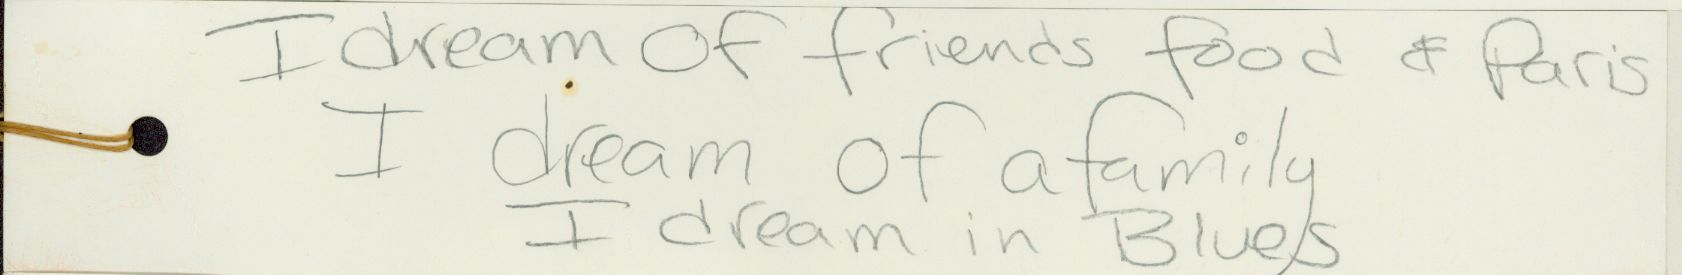 I dream of friends food & Paris
I dream of a family
I dream in Blues